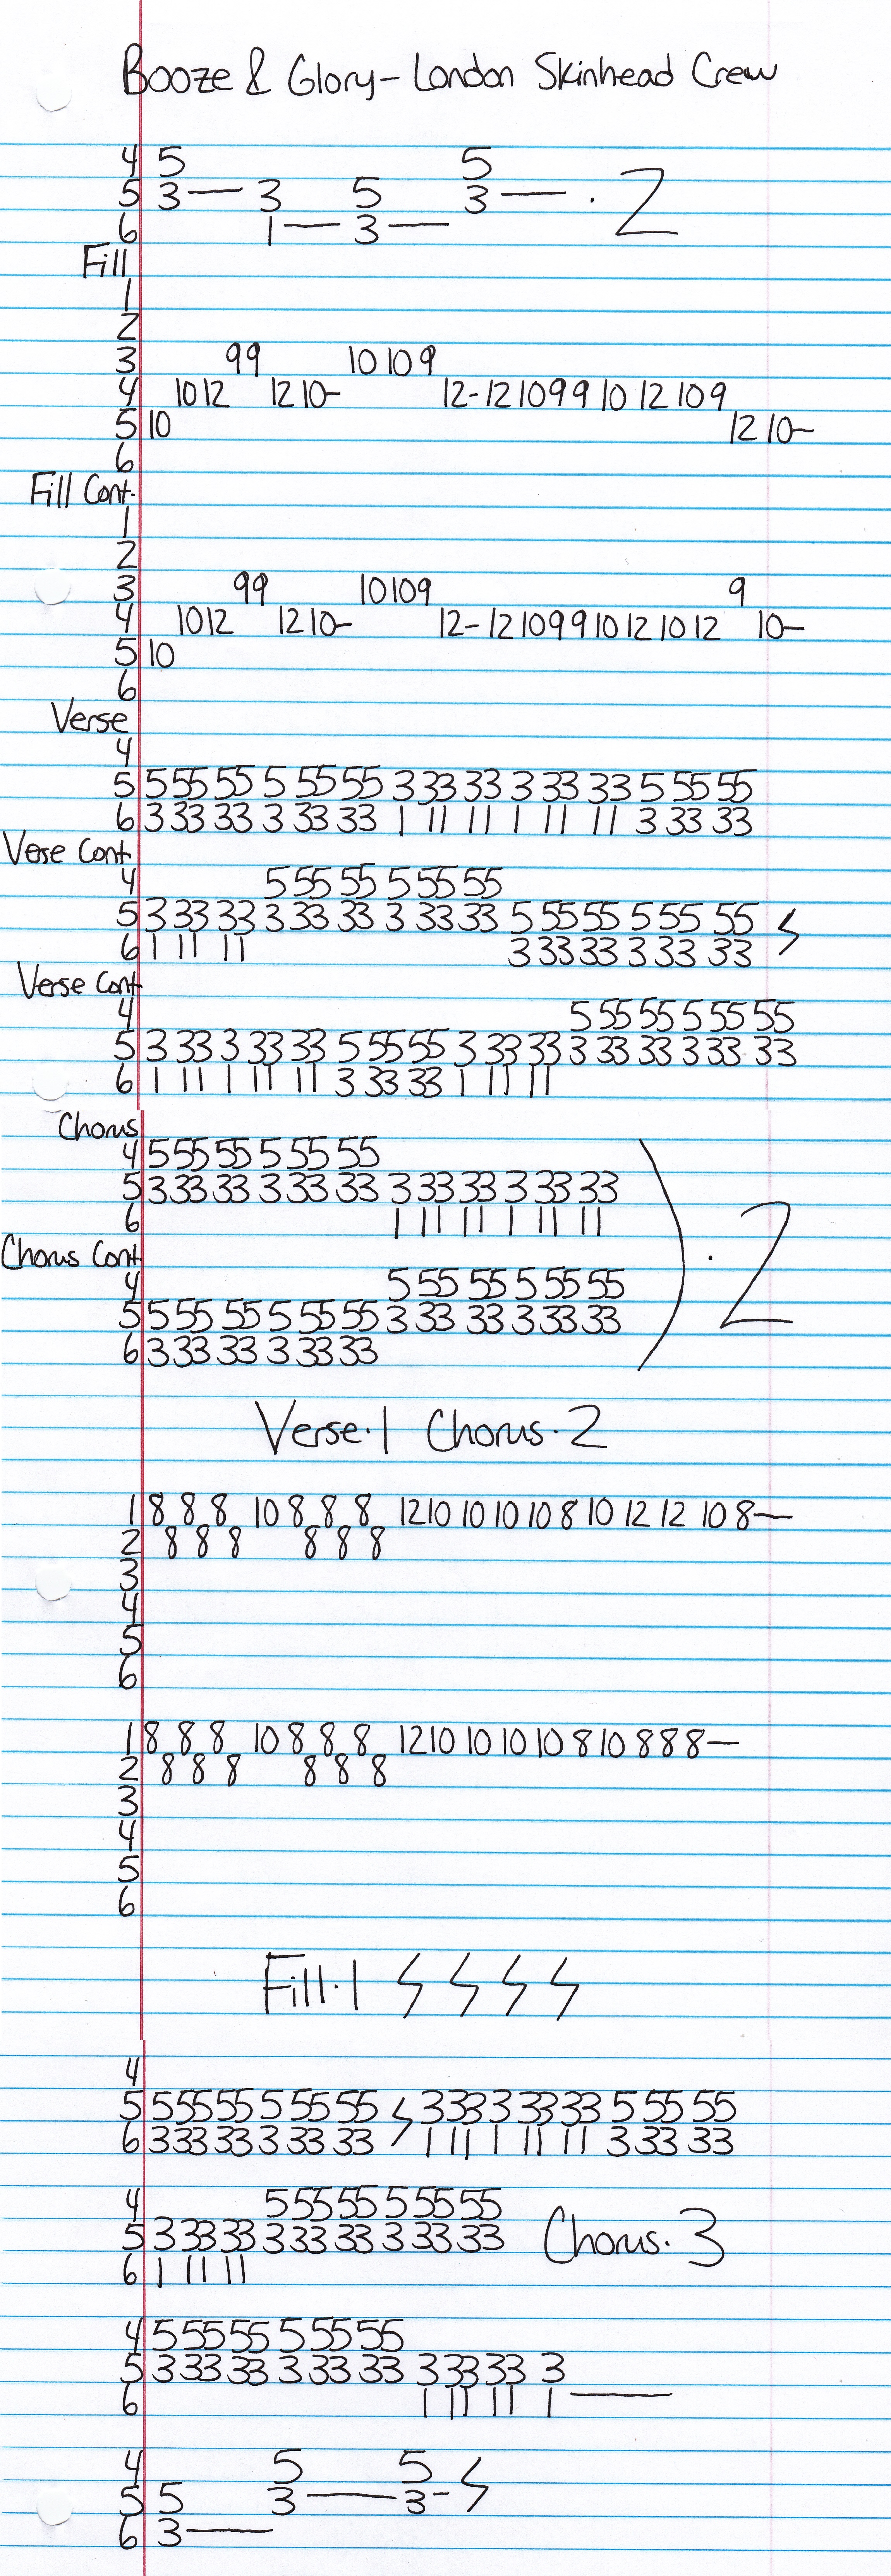 Booze & Glory - London Skinhead Crew
4 5 5
5 3 — 3 5 3 — · 2
6 1 — 3 —
Fill
1
2
3 99 10 10 9
4 10 12 12 10- 12-12 10 9 9 10 12 10 9
5 10 12 10-
6
Fill Cont.
1
2
3 99 10 10 9 9
4 10 12 12 10- 12-12 10 9 9 10 12 10 12 10-
5 10
6
Verse
4
5 5 55 55 5 55 55 3 33 33 3 33 33 5 55 55
6 3 33 33 3 33 33 1 11 11 1 11 11 3 33 33
Verse Cont
4 5 55 55 5 55 55
5 3 33 33 3 33 33 3 33 33 5 55 55 5 55 55
6 1 11 11 3 33 33 3 33 33
Verse Cont
4 5 55 55 5 55 55
5 3 33 3 33 33 5 55 55 3 33 33 3 33 33 3 33 33
6 1 11 1 11 11 3 33 33 1 11 11
Chorus
4 5 55 55 5 55 55
5 3 33 33 3 33 33 3 33 33 3 33 33
6 1 11 11 1 11 11
· 2
Chorus Cont
4 5 55 55 5 55 55
5 5 55 55 5 55 55 3 33 33 3 33 33
6 3 33 33 3 33 33
Verse·1 Chorus·2
1 8 8 8 10 8 8 8 12 10 10 10 10 8 10 12 12 10 8—
2 8 8 8 8 8 8
3
4
5
6
1 8 8 8 10 8 8 8 12 10 10 10 10 8 10 8 8 8—
2 8 8 8 8 8 8
3
4
5
6
Fill·1
4
5 5 55 55 5 55 55 3 33 3 33 33 5 55 55
6 3 33 33 3 33 33 1 11 1 11 11 3 33 33
4 5 55 55 5 55 55
5 3 33 33 3 33 33 3 33 33 Chorus·3
6 1 11 11
4 5 55 55 5 55 55
5 3 33 33 3 33 33 3 33 33 3
6 1 11 11 1 —
4 5 5
5 5 3 — 3-
6 3 —